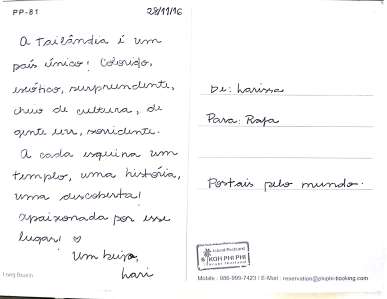 PP-81
28/11/16
A Tailândia é um
país único! Colorido,
exótico, surpreendente,
cheio de cultura, de
gente zen, sorridente.
A cada esquina um
templo, uma história,
uma descoberta!
Apaixonada por esse
lugar! ♡
Um beijo,
Lari
Long Beach
De: Larissa
Para: Rafa
Postais pelo mundo.
Island Postcard
KOH PHI PHI
Mobile : 086-999-7423 / E-Mail : reservation@phiphi-booking.com